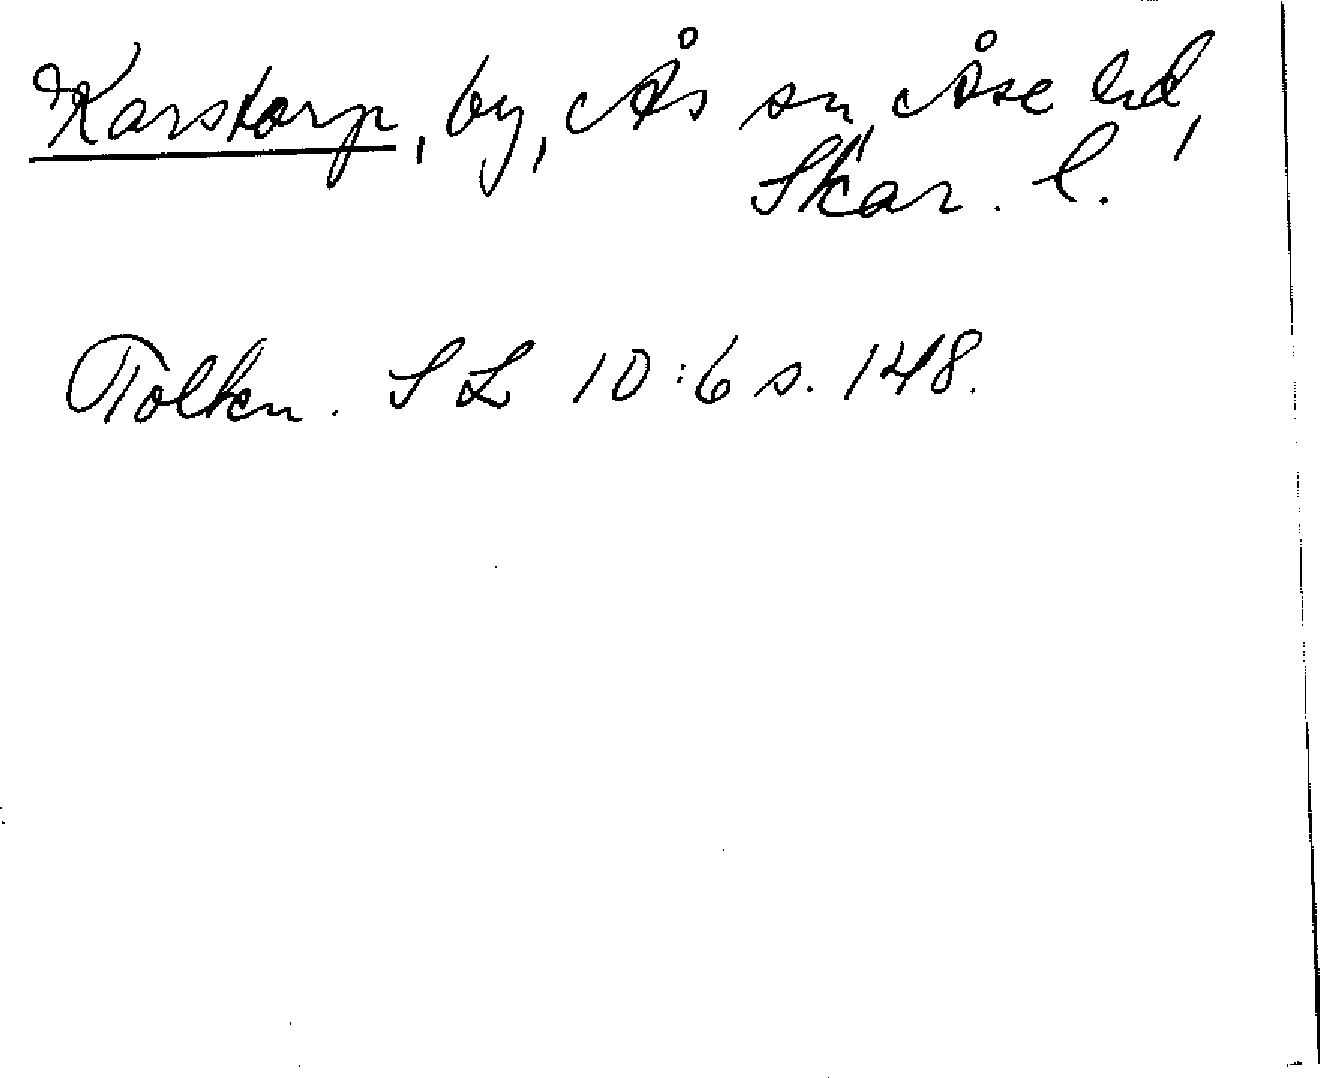 Karstorp, by, Ås sn, Åse hd,
Skar. l.
Tolkn. SL 10:6 s. 148.